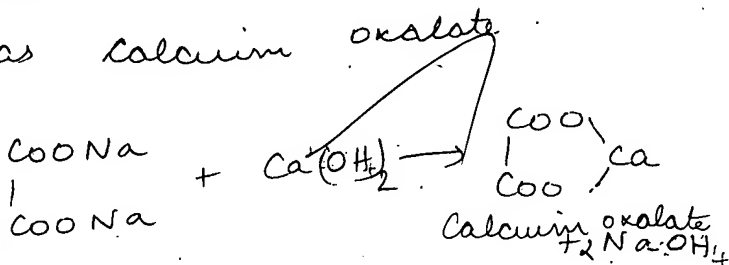 as calcium oxalate
COONa
|
COONa
+ Ca(OH)2 →
COO\
| Ca
COO/
Calcium oxalate
+2NaOH